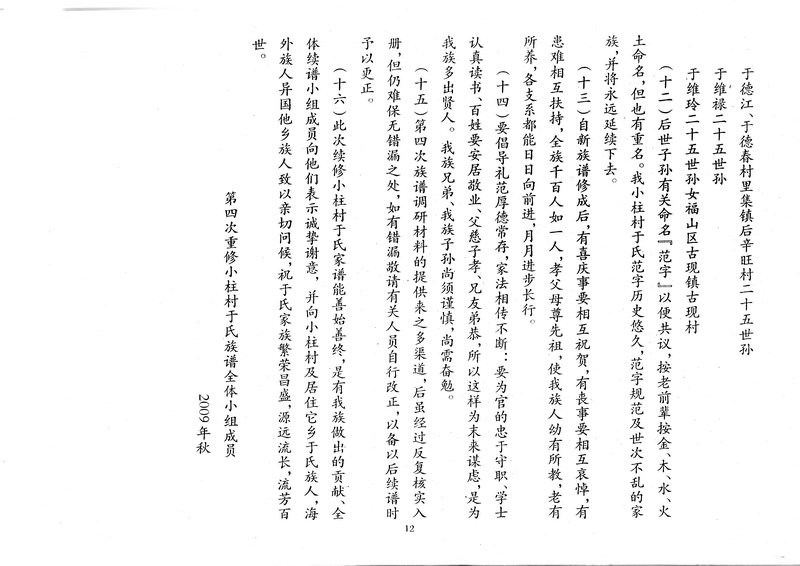 于德江、于德春村里集镇后辛旺村二十五世孙
于维禄二十五世孙
于维玲二十五世孙女福山区古现镇古现村
(十二)后世子孙有关命名『范字』以便共议，按老前辈按金、木、水、火
土命名，但也有重名。我小柱村于氏范字历史悠久，范字规范及世次不乱的家
族，并将永远延续下去。
(十三)自新族谱修成后，有喜庆事要相互祝贺，有丧事要相互哀悼，有
患难相互扶持，全族千百人如一人，孝父母尊先祖，使我族人幼有所教，老有
所养，各支系都能日日向前进，月月进步长行。
(十四)要倡导礼范厚德常存，家法相传不断：要为官的忠于守职、学士
认真读书、百姓要安居敬业、父慈子孝、兄友弟恭，所以这样为末来谋虑，是为
我族多出贤人。我族兄弟、我族子孙尚须谨慎，尚需奋勉。
(十五)第四次族谱调研材料的提供来之多渠道，后虽经过反复核实入
册，但仍难保无错漏之处，如有错漏敬请有关人员自行改正，以备以后续谱时
予以更正。
(十六)此次续修小柱村于氏家谱能善始善终，是有我族做出的贡献、全
体续谱小组成员向他们表示诚挚谢意，并向小柱村及居住它乡于氏族人，海
外族人异国他乡族人致以亲切问候，祝于氏家族繁荣昌盛，源远流长，流芳百
世。
第四次重修小柱村于氏族谱全体小组成员
2009年秋
12